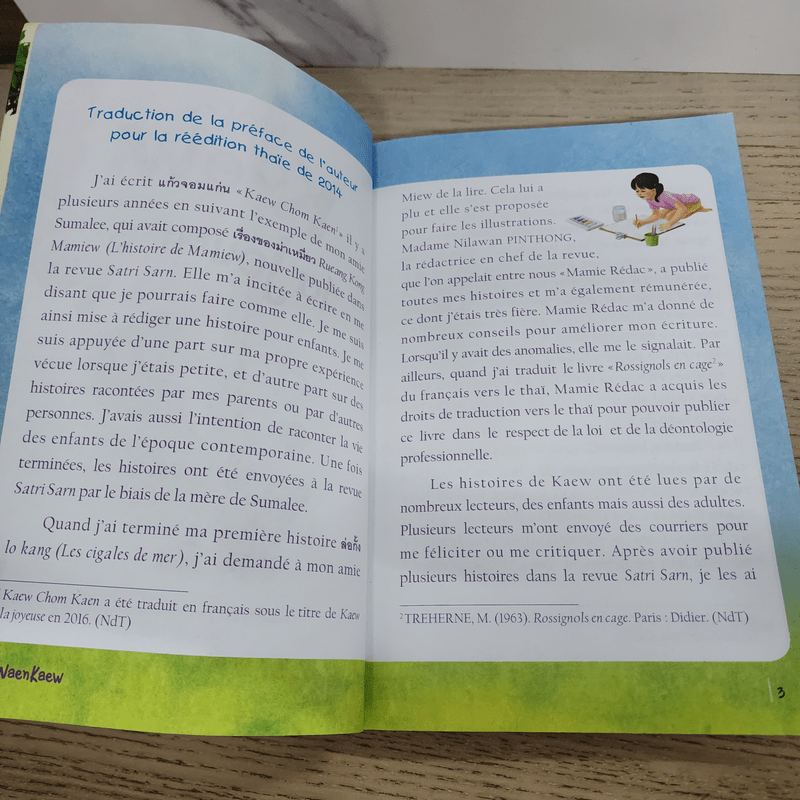 Traduction de la préface de l'auteur
pour la réédition thaïe de 2014
J'ai écrit แก้วจอมแก่น « Kaew Chom Kaen¹ » il y a
plusieurs années en suivant l'exemple de mon amie
Sumalee, qui avait composé เรื่องของม่าเหมี่ยว Rueang Kong
Mamiew (L'histoire de Mamiew), nouvelle publiée dans
la revue Satri Sarn. Elle m'a incitée à écrire en me
disant que je pourrais faire comme elle. Je me suis
ainsi mise à rédiger une histoire pour enfants. Je me
suis appuyée d'une part sur ma propre expérience
vécue lorsque j'étais petite, et d'autre part sur des
histoires racontées par mes parents ou par d'autres
personnes. J'avais aussi l'intention de raconter la vie
des enfants de l'époque contemporaine. Une fois
terminées, les histoires ont été envoyées à la revue
Satri Sarn par le biais de la mère de Sumalee.
Quand j'ai terminé ma première histoire ล่อกั้ง
lo kang (Les cigales de mer), j'ai demandé à mon amie
Kaew Chom Kaen a été traduit en français sous le titre de Kaew
la joyeuse en 2016. (NdT)
NaenKaew
Miew de la lire. Cela lui a
plu et elle s'est proposée
pour faire les illustrations.
Madame Nilawan PINTHONG,
la rédactrice en chef de la revue,
que l'on appelait entre nous « Mamie Rédac », a publié
toutes mes histoires et m'a également rémunérée,
ce dont j'étais très fière. Mamie Rédac m'a donné de
nombreux conseils pour améliorer mon écriture.
Lorsqu'il y avait des anomalies, elle me le signalait. Par
ailleurs, quand j'ai traduit le livre « Rossignols en cage² »
du français vers le thaï, Mamie Rédac a acquis les
droits de traduction vers le thaï pour pouvoir publier
ce livre dans le respect de la loi et de la déontologie
professionnelle.
Les histoires de Kaew ont été lues par de
nombreux lecteurs, des enfants mais aussi des adultes.
Plusieurs lecteurs m'ont envoyé des courriers pour
me féliciter ou me critiquer. Après avoir publié
plusieurs histoires dans la revue Satri Sarn, je les ai
² TREHERNE, M. (1963). Rossignols en cage. Paris : Didier. (NdT)
3